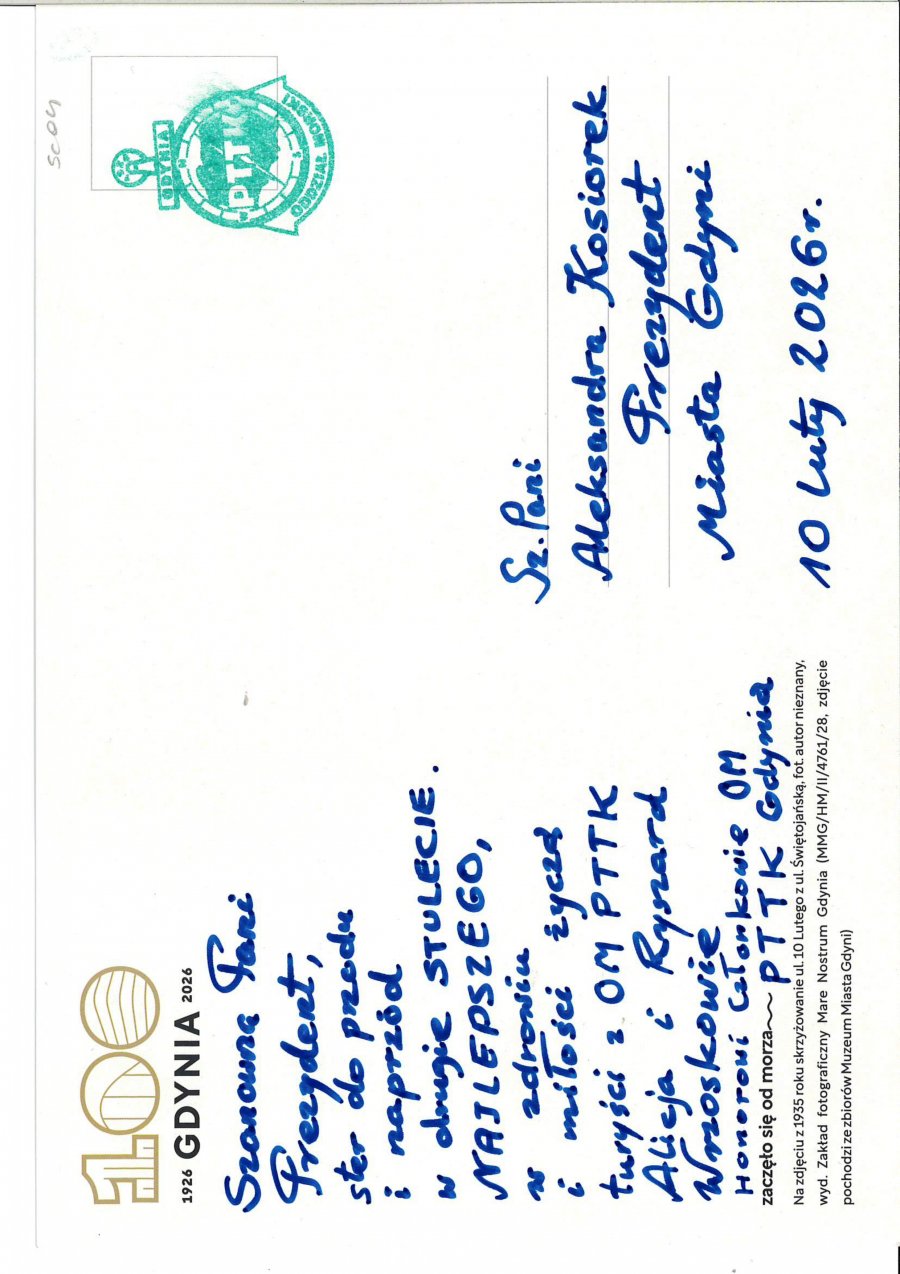 100
1926 GDYNIA 2026
Szanowna Pani
Prezydent,
ster do przodu
i naprzód
w drugie STULECIE.
NAJLEPSZEGO,
w zdrowiu
i miłości życzą
turyści z OM PTTK
Alicja i Ryszard
Wrzoskowie
Honorowi Członkowie OM
PTTK Gdynia
zaczęło się od morza
Na zdjęciu z 1935 roku skrzyżowanie ul. 10 Lutego z ul. Świętojańską, fot. autor nieznany,
wyd. Zakład fotograficzny Mare Nostrum Gdynia (MMG/HM/II/4761/28, zdjęcie
pochodzi ze zbiorów Muzeum Miasta Gdyni)
SC04
GDYNIA
PTTK
ODDZIAŁ MORSKI
Sz. Pani
Aleksandra Kosiorek
Prezydent
Miasta Gdyni
10 Luty 2026r.